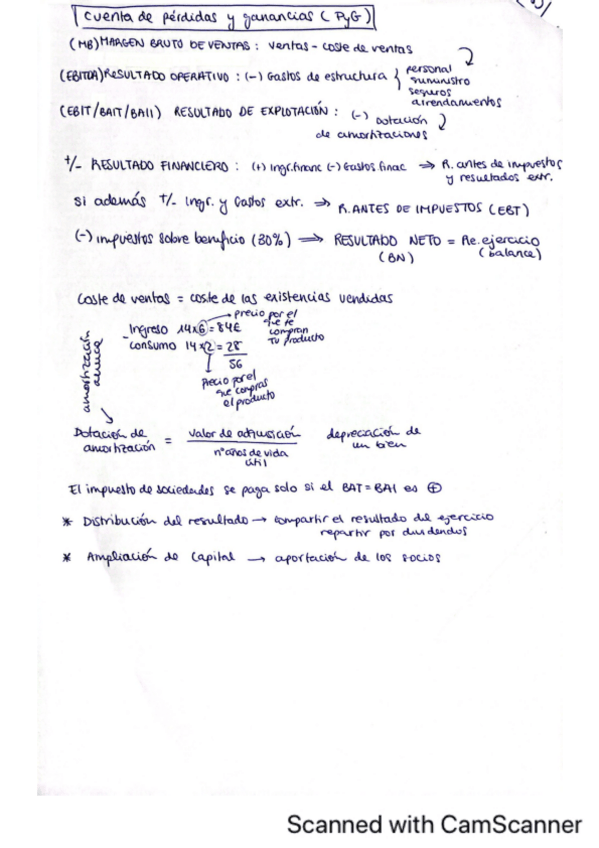 Cuenta de pérdidas y ganancias (PyG)
(MB) MARGEN BRUTO DE VENTAS : Ventas - coste de ventas
(EBITDA) RESULTADO OPERATIVO : (-) Gastos de estructura } personal
suministro
seguros
arrendamientos
(EBIT/BAIT/BAII) RESULTADO DE EXPLOTACIÓN : (-) Dotación
de amortizaciones
+/- RESULTADO FINANCIERO : (+) Ingr.financ (-) Gastos finac ⇒ R. antes de impuestos
y resultados extr.
Si además +/- Ingr. y Gastos extr. ⇒ R. ANTES DE IMPUESTOS (EBT)
(-) impuestos sobre beneficio (30%) ⇒ RESULTADO NETO = Re. ejercicio
(BN) (balance)
Coste de ventas = coste de las existencias vendidas
Ingreso 14x6 = 84€ → precio por el
que te
compran
tu producto
-
consumo 14x2 = 28
56
Precio por el
que compras
el producto
amortización
Dotación de
amortización = valor de adquisición
nº años de vida
útil
depreciación de
un bien
El impuesto de sociedades se paga solo si el BAT = BAI es ⊕
* Distribución del resultado → compartir el resultado del ejercicio
repartir por dividendos
* Ampliación de Capital → aportación de los socios
Scanned with CamScanner